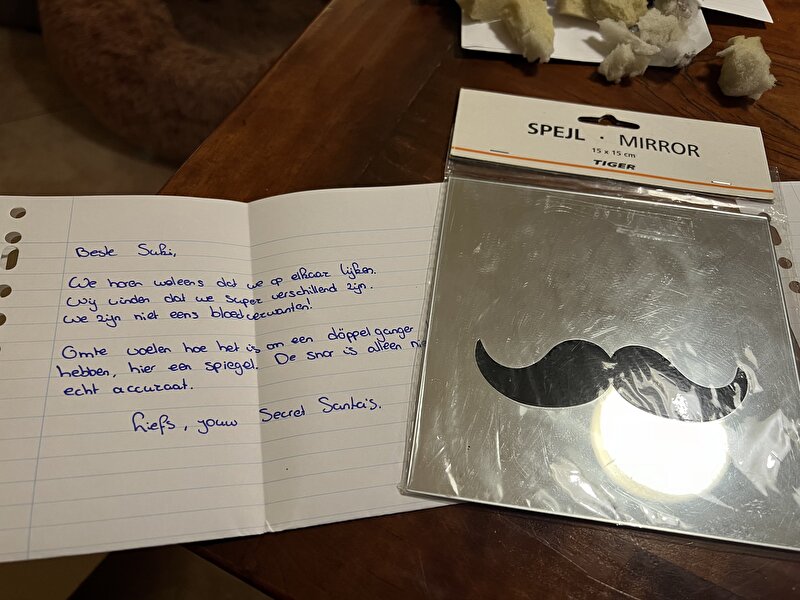 SPEJL · MIRROR
15 x 15 cm
TIGER
Beste Suki,
We horen weleens dat we op elkaar lijken.
Wij vinden dat we super verschillend zijn.
We zijn niet eens bloedverwanten!
Omte voelen hoe het is om een döppelganger
hebben, hier een spiegel. De snor is alleen
echt accuraat.
Liefs, jouw Secret Santa's.